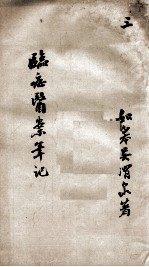 三
如皋吴渭泉著
臨症醫案筆記